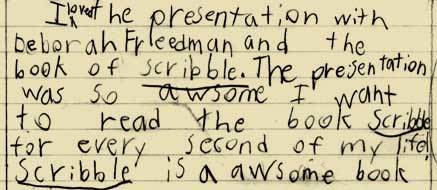 I loved the presentation with
Deborah Freedman and the
book of scribble. The presentation
was so awsome I want
to read the book Scribble
for every second of my life!
Scribble is a awsome book